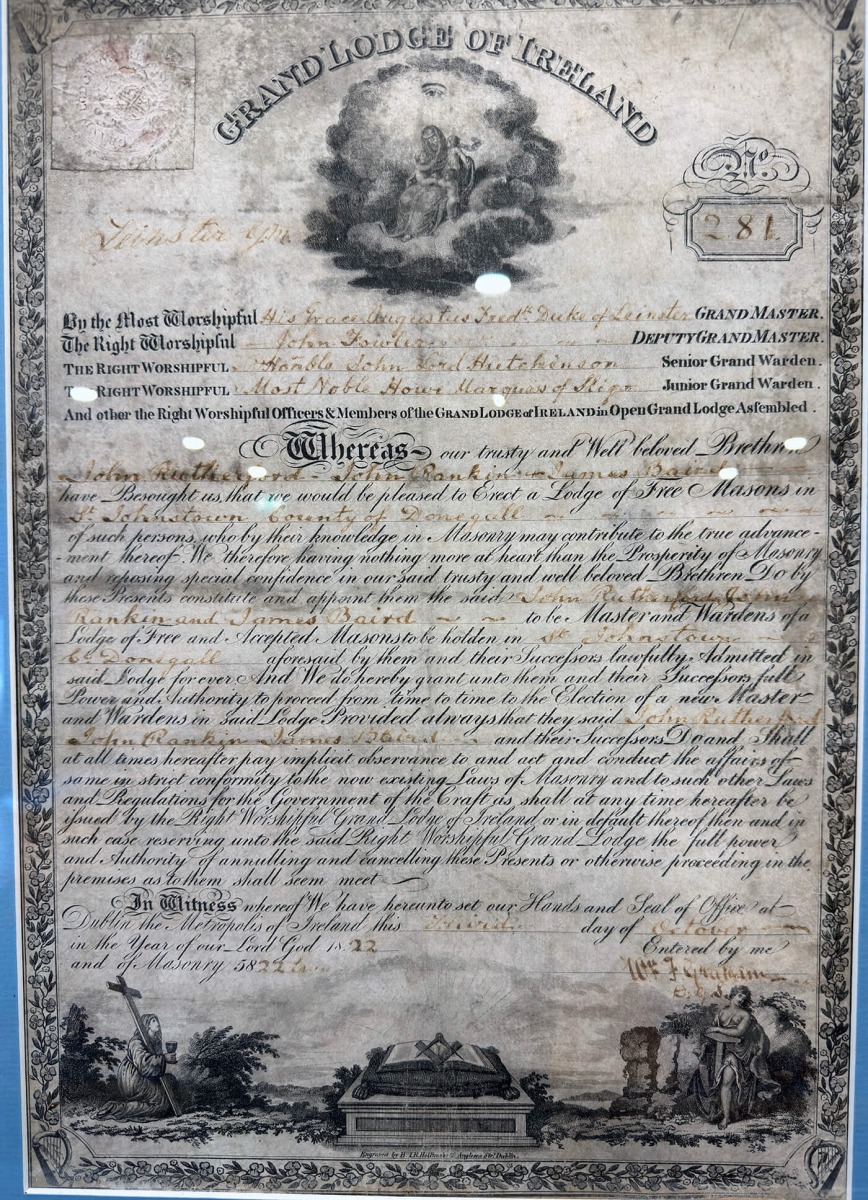 GRAND LODGE OF IRELAND
No.
281
Leinster GM.
By the Most Worshipful His Grace Augustus Fredk. Duke of Leinster GRAND MASTER.
The Right Worshipful John Fowler DEPUTY GRAND MASTER.
THE RIGHT WORSHIPFUL Honble John Lord Hutchinson Senior Grand Warden
RIGHT WORSHIPFUL Most Noble Howe Marquess of Sligo Junior Grand Warden.
And other the Right Worshipful Officers & Members of the GRAND LODGE of IRELAND in Open Grand Lodge Assembled.
Whereas our trusty and Well beloved Brethren
John Rutherford - John Rankin - James Baird
have Besought us, that we would be pleased to Erect a Lodge of Free Masons in
St Johnstown County of Donegall
of such persons, who by their knowledge in Masonry may contribute to the true advance-
-ment thereof. We therefore having nothing more at heart than the Prosperity of Masonry
and reposing special confidence in our said trusty and well beloved Brethren Do by
these Presents constitute and appoint them the said John Rutherford John
Rankin and James Baird to be Master and Wardens of a
Lodge of Free and Accepted Masons to be holden in St Johnstown
Co Donegall aforesaid by them and their Successors lawfully Admitted in
said Lodge for ever And We do hereby grant unto them and their Successors full
Power and Authority to proceed from time to time to the Election of a new Master
and Wardens in said Lodge Provided always that they said John Rutherford
John Rankin James Baird and their Successors Do and Shall
at all times hereafter pay implicit observance to and act and conduct the affairs of
same in strict conformity to the now existing Laws of Masonry and to such other Laws
and Regulations for the Government of the Craft as shall at any time hereafter be
issued by the Right Worshipful Grand Lodge of Ireland, or in default thereof then and in
such case reserving unto the said Right Worshipful Grand Lodge the full power
and Authority of annulling and cancelling these Presents or otherwise proceeding in the
premises as to them shall seem meet
In Witness whereof We have hereunto set our Hands and Seal of Office at
Dublin the Metropolis of Ireland this Third day of October
in the Year of our Lord God 1822 Entered by me
and of Masonry 5822 Wm F Graham
D.G.S.
Engraved by Anglesea St. Dublin.